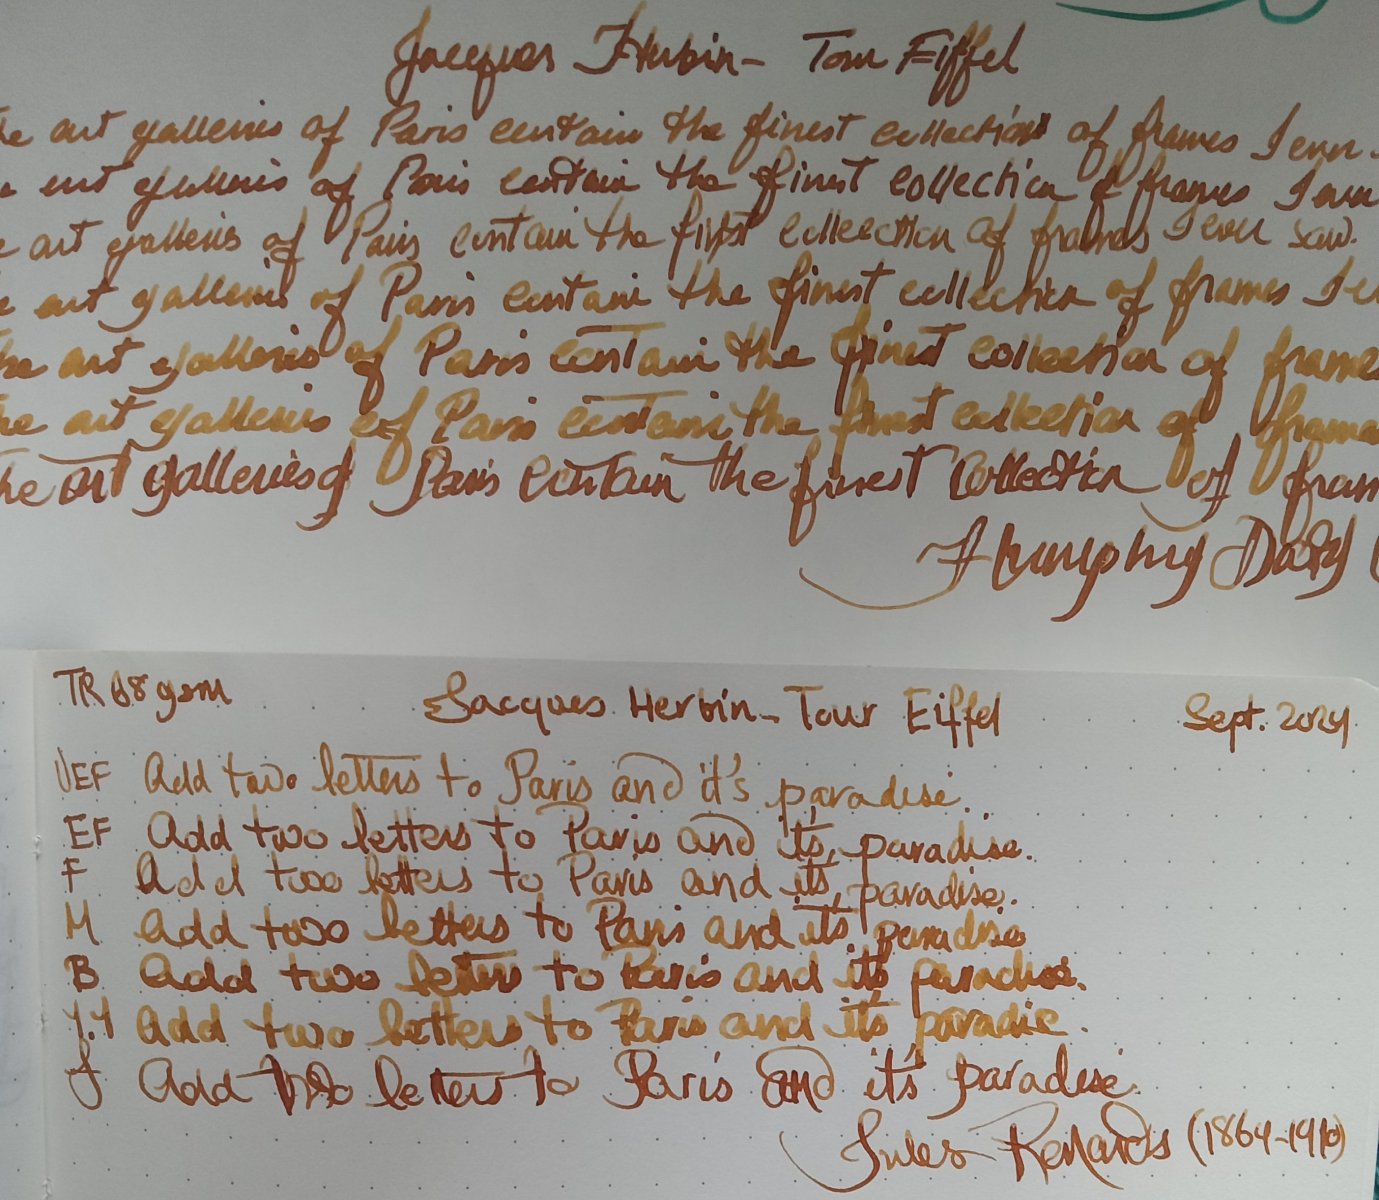 Jacques Herbin - Tour Eiffel
he art galleries of Paris contain the finest collection of frames I ever
art galleries of Paris contain the finest collection of frames I ever
e art galleries of Paris contain the first collection of frames I ever saw.
e art galleries of Paris contain the finest collection of frames I ev
he art galleries of Paris contain the finest collection of frames
he art galleries of Paris contain the finest collection of frame
he art galleries of Paris contain the finest collection of fram
Humphry Davy (
TR 68 gsm Jacques Herbin - Tour Eiffel Sept. 2024
UEF Add two letters to Paris and it's paradise.
EF Add two letters to Paris and it's paradise.
F Add two letters to Paris and it's paradise.
M Add two letters to Paris and it's paradise
B Add two letters to Paris and it's paradise.
1.1 Add two letters to Paris and it's paradie.
J Add two letters to Paris and it's paradise.
Jules Renards (1864-1910)